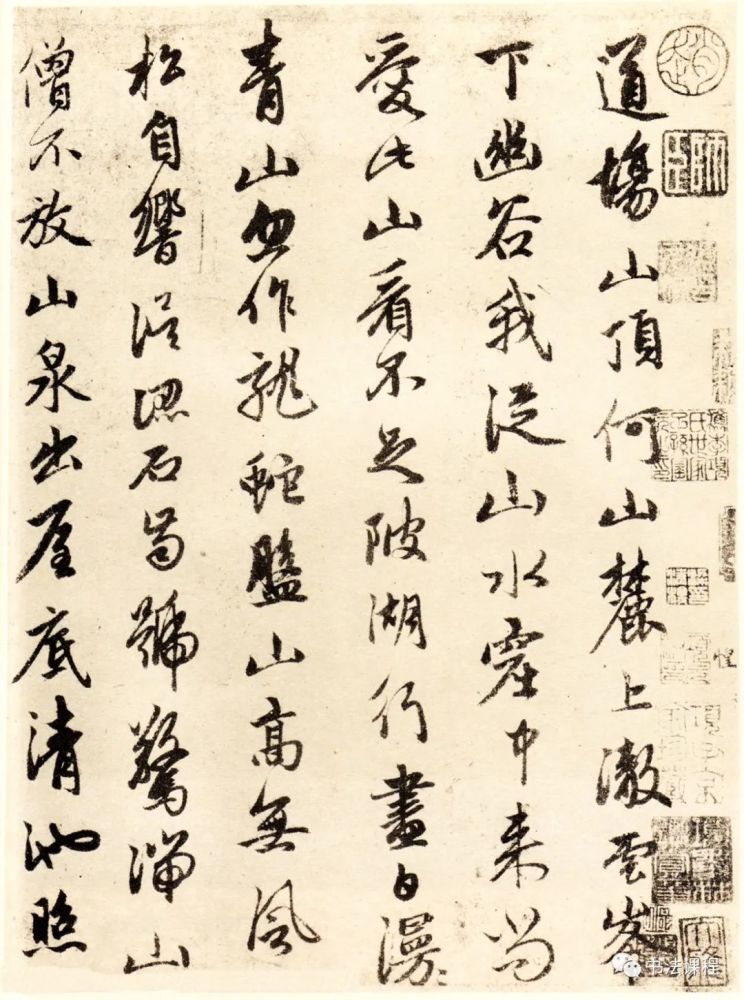 道場山頂何山麓上澈雲峯
下幽谷我從山水窟中来尚
愛此山看不足陂湖行盡白漫〻
青山忽作龍蛇盤山高無風
松自響誤認石齒號驚湍山
僧不放山泉出屋底清池照
书法课程